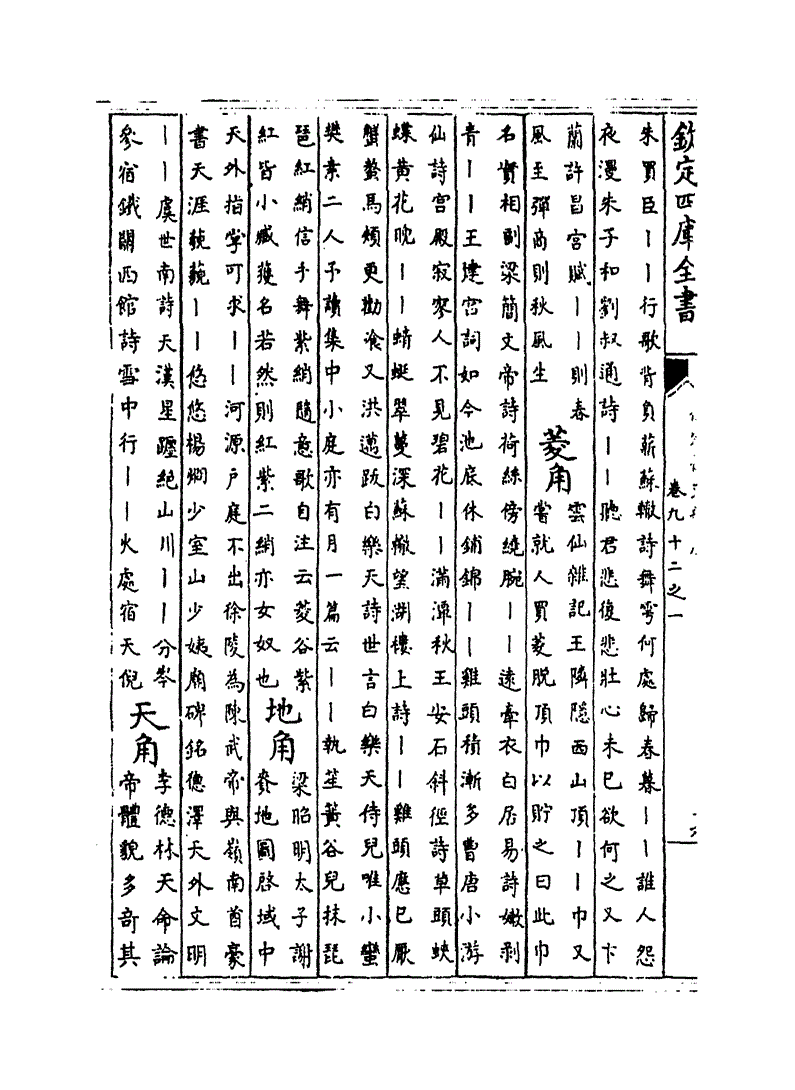 欽定四庫全書
卷九十二之一
朱買臣｜｜行歌背負薪蘇轍詩舞雩何處歸春暮｜｜誰人怨
夜漫朱子和劉叔通詩｜｜聽君悲復悲壯心未已欲何之又卞
蘭許昌宮賦｜｜則春
風至彈商則秋風生
菱角
雲仙雜記王隣隠西山頂｜｜巾又
嘗就人買菱脱頂巾以貯之曰此巾
名實相副梁簡文帝詩荷絲傍繞腕｜｜逺牽衣白居易詩嫩剥
青｜｜王建宮詞如今池底休鋪錦｜｜雞頭積漸多曹唐小游
仙詩宮殿寂寥人不見碧花｜｜滿潭秋王安石斜徑詩草頭蛺
蝶黄花晩｜｜蜻蜓翠蔓深蘇轍望湖樓上詩｜｜雞頭應已厭
蟹螯馬頰更勸飡又洪邁跋白樂天詩世言白樂天侍兒唯小蠻
樊素二人予讀集中小庭亦有月一篇云｜｜執笙簧谷兒抹琵
琶紅綃信手舞紫綃隨意歌自注云菱谷紫
紅皆小臧獲名若然則紅紫二綃亦女奴也
地角
梁昭明太子謝
賚地圖啟域中
天外指掌可求｜｜河源户庭不出徐陵為陳武帝與嶺南酋豪
書天涯藐藐｜｜悠悠楊烱少室山少姨廟碑銘德澤天外文明
｜｜虞世南詩天漢星躔絶山川｜｜分岑
參宿鐵關西館詩雪中行｜｜火處宿天倪
天角
李德林天命論
帝體貌多竒其